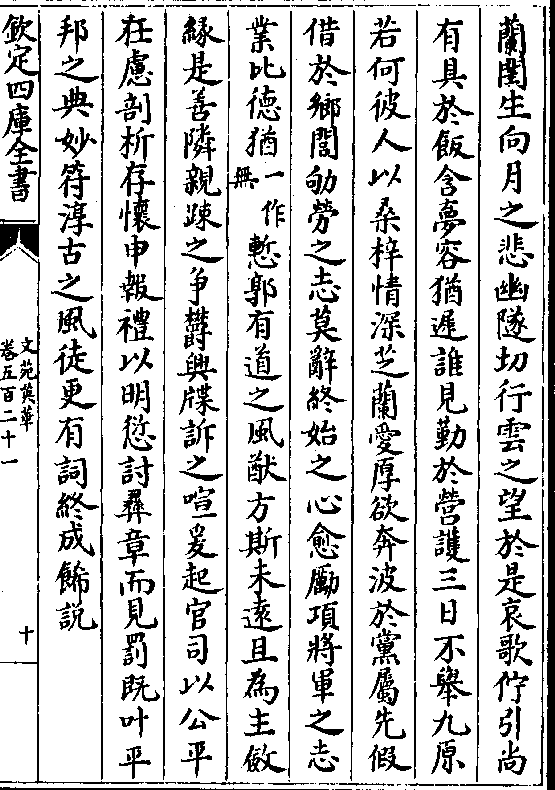 蘭閨生向月之悲幽隧切行雲之望於是哀歌佇引尚
有具於飯含夢容猶遲誰見勤於營護三日不舉九原
若何彼人以桑梓情深芝蘭愛厚欲奔波於黨屬先假
借於鄉閭劬勞之志莫辭終始之心愈勵項將軍之志
業比德猶一作無慙郭有道之風猷方斯未遠且為主斂
緣是善隣親疎之爭欝興牒訴之喧爰起官司以公平
在慮剖析存懷申報禮以明愆討彞章而見罰既叶平
邦之典妙符淳古之風徒更有詞終成餙說
欽定四庫全書
文苑英華
卷五百二十一
十